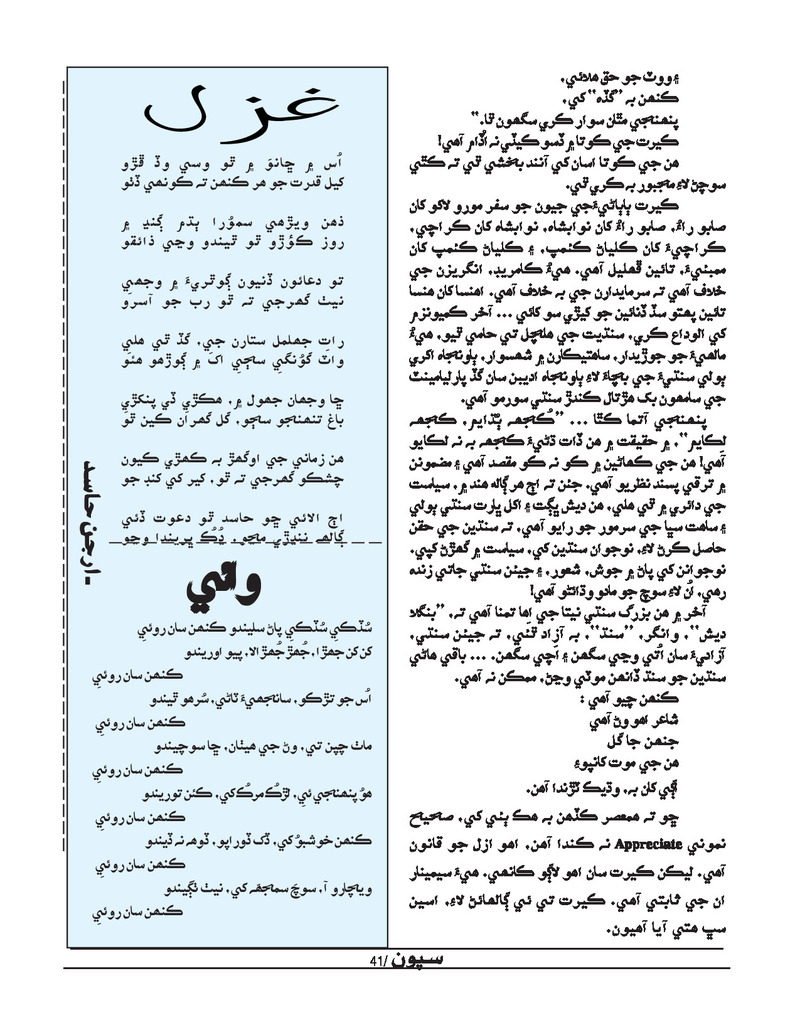 ۽ ووٽ جو حق هلائي،
ڪنهن به “گڏهه” کي،
پنهنجي مٿان سوار ڪري سگهون ٿا.“
ڪيرت جي ڪوتا ۾ ڏسو ڪيڏي نه اُڏام آهي!
هن جي ڪوتا اسان کي آنند بخشي ٿي ته ڪٿي
سوچڻ لاءِ مجبور به ڪري ٿي.
ڪيرت ٻاٻاڻيءَ جي جيون جو سفر مورو لاکو کان
صابو راءُ، صابو راءُ کان نوابشاه، نوابشاه کان ڪراچي،
ڪراچيءَ کان ڪلياڻ ڪئمپ، ۽ ڪلياڻ ڪئمپ کان
ممبئيءَ، تائين ڦهليل آهي. هيءُ ڪامريڊ، انگريزن جي
خلاف آهي ته سرمايدارن جي به خلاف آهي. اهنسا کان هنسا
تائين پهتو سڏ ڏنائين جو ڪيڙي سو کائي ... آخر ڪميونزم
کي الوداع ڪري، سنڌيت جي هلچل تي حامي ٿيو، هيءُ
مالهيءَ جو جوڙيدار، ساهتيڪارن ۾ شهسوار، ٻاونجاه اکري
ٻولي سنڌيءَ جي بچاءَ لاءِ ٻاونجاه اديبن سان گڏ پارليامينٽ
جي سامهون بک هڙتال ڪندڙ سنڌي سورمو آهي.
پنهنجي آتما ڪٿا ... “ڪُجهه ٻُڌايم، ڪجهه
لڪايم“، ۾ حقيقت ۾ هن ذات ڌڻيءَ ڪجهه به نه لڪايو
آهي! هن جي ڪهاڻين ۾ ڪو نه ڪو مقصد آهي ۽ مضمونن
۾ ترقي پسند نظريو آهي، جئن ته اڄ هر ڳالهه هند ۾، سياست
جي دائري ۾ ٿي هلي، هن ديش ڀڳت ۽ اکل ڀارت سنڌي ٻولي
۽ ساهت سڀا جي سرمور جو رايو آهي، ته سنڌين جي حقن
حاصل ڪرڻ لاءِ، نوجوان سنڌين کي، سياست ۾ گهڙڻ کپي.
نوجوانن کي پاڻ ۾ جوش، شعور، ۽ جيئن سنڌي جاتي زنده
رهي، اُن لاءِ سوچ جو مادو وڌائڻو آهي!
آخر ۾ هن بزرگ سنڌي نيتا جي اِها تمنا آهي ته، “بنگلا
ديش“، وانگر، “سنڌ“، به آزاد ٿئي، ته جيئن سنڌي،
آزاديءَ سان اُتي وڃي سگهن ۽ اَچي سگهن. ... باقي هاڻي
سنڌين جو سنڌ ڏانهن موٽي وڃڻ، ممڪن نه آهي.
ڪنهن چيو آهي :
شاعر اهو وڻ آهي
جنهن جا گل
هن جي موت کانپوءِ
اڳي کان به، وڌيڪ ٽڙندا آهن.
ڇو ته همعصر ڪڏهن به هڪ ٻئي کي، صحيح
نموني Appreciate نه ڪندا آهن، اهو ازل جو قانون
آهي. ليڪن ڪيرت سان اهو لاڳو ڪانهي. هيءُ سيمينار
ان جي ثابتي آهي. ڪيرت تي ئي ڳالهائڻ لاءِ، اسين
سڀ هتي آيا آهيون.
غزل
اُس ۾ ڇانوَ ۾ ٿو وسي وڏ ڦڙو
کيل قدرت جو هر ڪنهن ته ڪونهي ڏٺو
ذهن ويڙهي سموُرا ٻڌم ڳنڍ ۾
روز ڪؤڙو ٿو ٿيندو وڃي ذائقو
تو دعائون ڏنيون ڳوٿريءَ ۾ وجهي
نيٺ گهرجي ته ٿو رب جو آسرو
رات جهلمل ستارن جي، گڏ ٿي هلي
واٽ گوُنگي سڄي اک ۾ ڳوڙهو هئو
ڇا وجهان جهول ۾، هڪڙي ڏي پنکڙي
باغ تنهنجو سڄو، گل گهران ڪين ٿو
هن زماني جي اوگهڙ به ڪهڙي ڪيون
چشڪو گهرجي ته ٿو، کير کي کنڊ جو
اڄ الائي ڇو حاسد ٿو دعوت ڏئي
ڳالهه ننڍڙي مڃو، دُک ڀريندا وڃو
-ارجن حاسد
وائي
سُڏڪي سُڏڪي پاڻ سليندو ڪنهن سان روئي
کن کن جهڙا، جُهڙ جُهڙالا، پيو اوريندو
ڪنهن سان روئي
اُس جو تڙڪو، سانجهيءَ تائي، سُرهو ٿيندو
ڪنهن سان روئي
مات چپن تي، وڻ جي هيٺان، ڇا سوچيندو
ڪنهن سان روئي
هوُ پنهنجي ئي، لڙڪُ مرڪُ کي، ڪٿن توريندو
ڪنهن سان روئي
ڪنهن خوشبوُ کي، ڏک ڏوراپو، ڏوهه نه ڏيندو
ڪنهن سان روئي
ويچارو آ، سوچ سمجهه کي، نيٺ ٺڳيندو
ڪنهن سان روئي
سپون /41